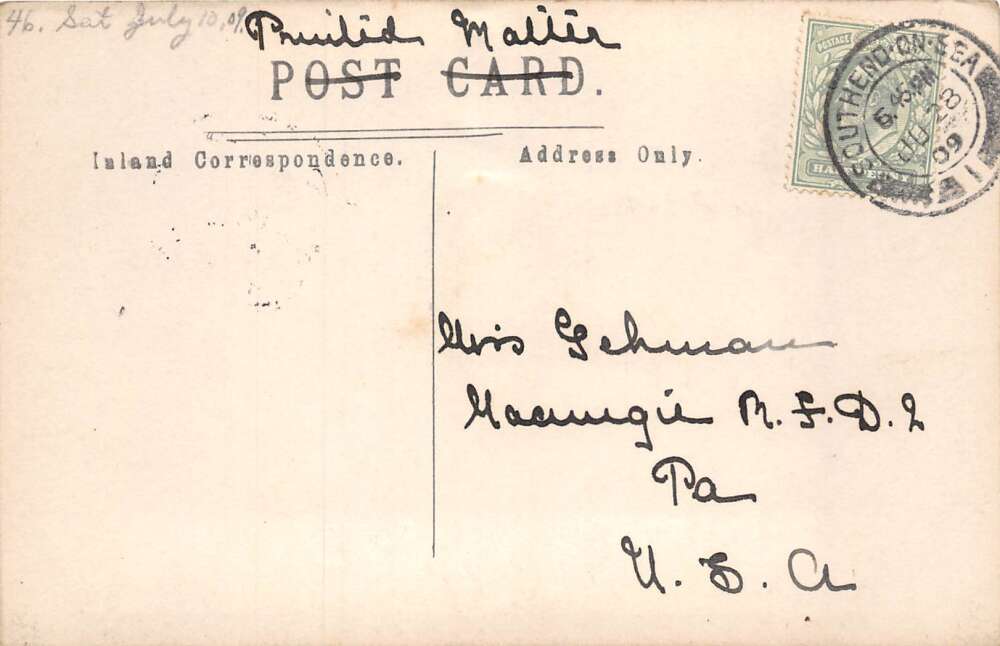 46. Sat July 10, 09.
Printed Matter
POST CARD.
Inland Correspondence.
Address Only.
POSTAGE
SOUTHEND-ON-SEA
6.45 PM
JU 28
09
11
Gehman
Macungie R. F. D. 2
Pa
U. S. A